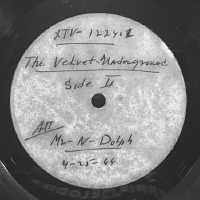 XTV-122402
The Velvet Underground
Side II
Att
Mr-N-Dolph
4-25-66